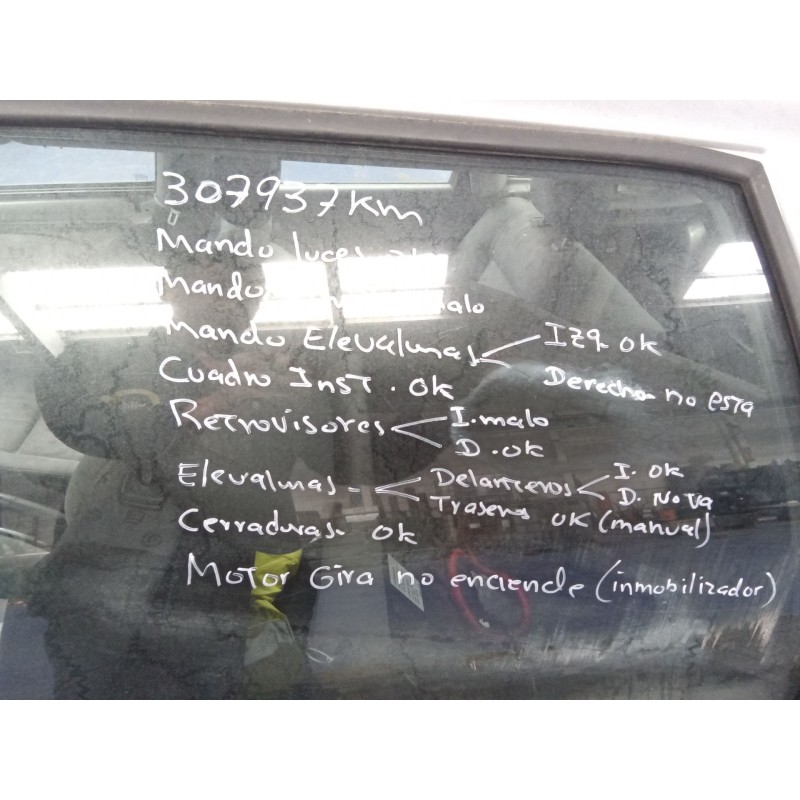 307937 km
Mando luces
Mando malo
Mando Elevalunas Izq. ok
Derecho no esta
Cuadro Inst. ok
Retrovisores I. malo
D. ok
Elevalunas Delanteros I. ok
D. No va
Traseros ok (manual)
Cerraduras ok
Motor Gira no enciende (inmobilizador)